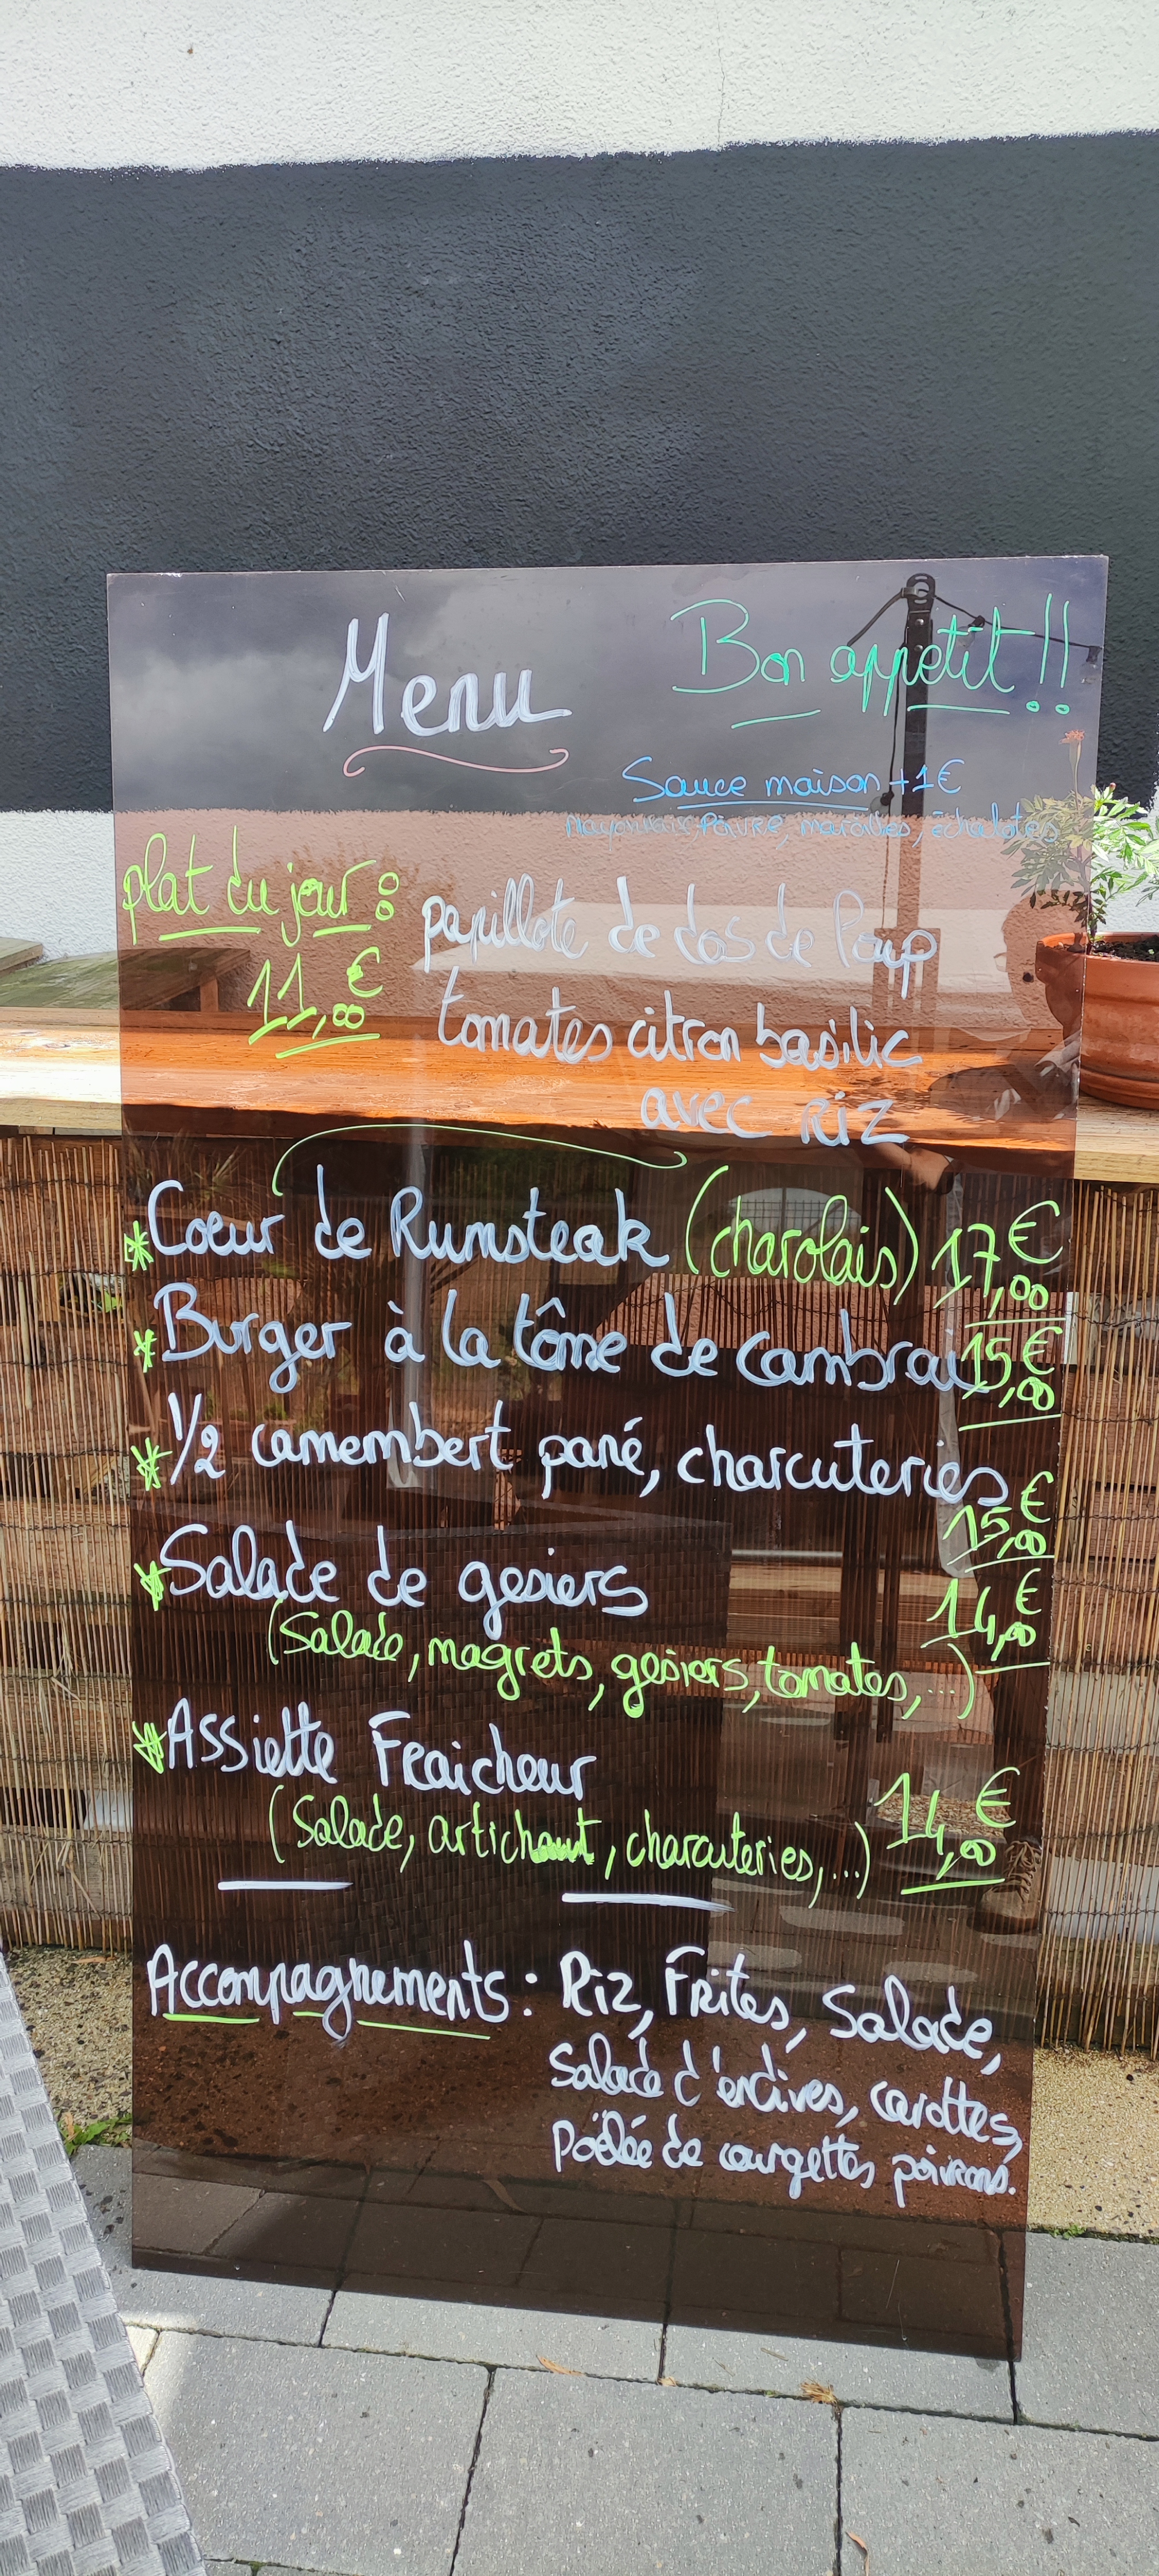 Menu
Bon appetit !!
Sauce maison +1€
Poivre, maroilles, échalotes
plat du jour :
11,00€
papillote de dos de loup
tomates citron basilic
avec Riz
* Coeur de Rumsteak (charolais) 17,00€
* Burger à la tôme de Cambrai 15,00€
* 1/2 camembert pané, charcuteries
15,00€
* Salade de gesiers
14,00€
(Salade, magrets, gesiers, tomates, ...)
* Assiette Fraicheur
14,00€
(Salade, artichaut, charcuteries, ...)
Accompagnements : Riz, Frites, Salade,
Salade d'endives, carottes,
Poëlée de courgettes poivrons.